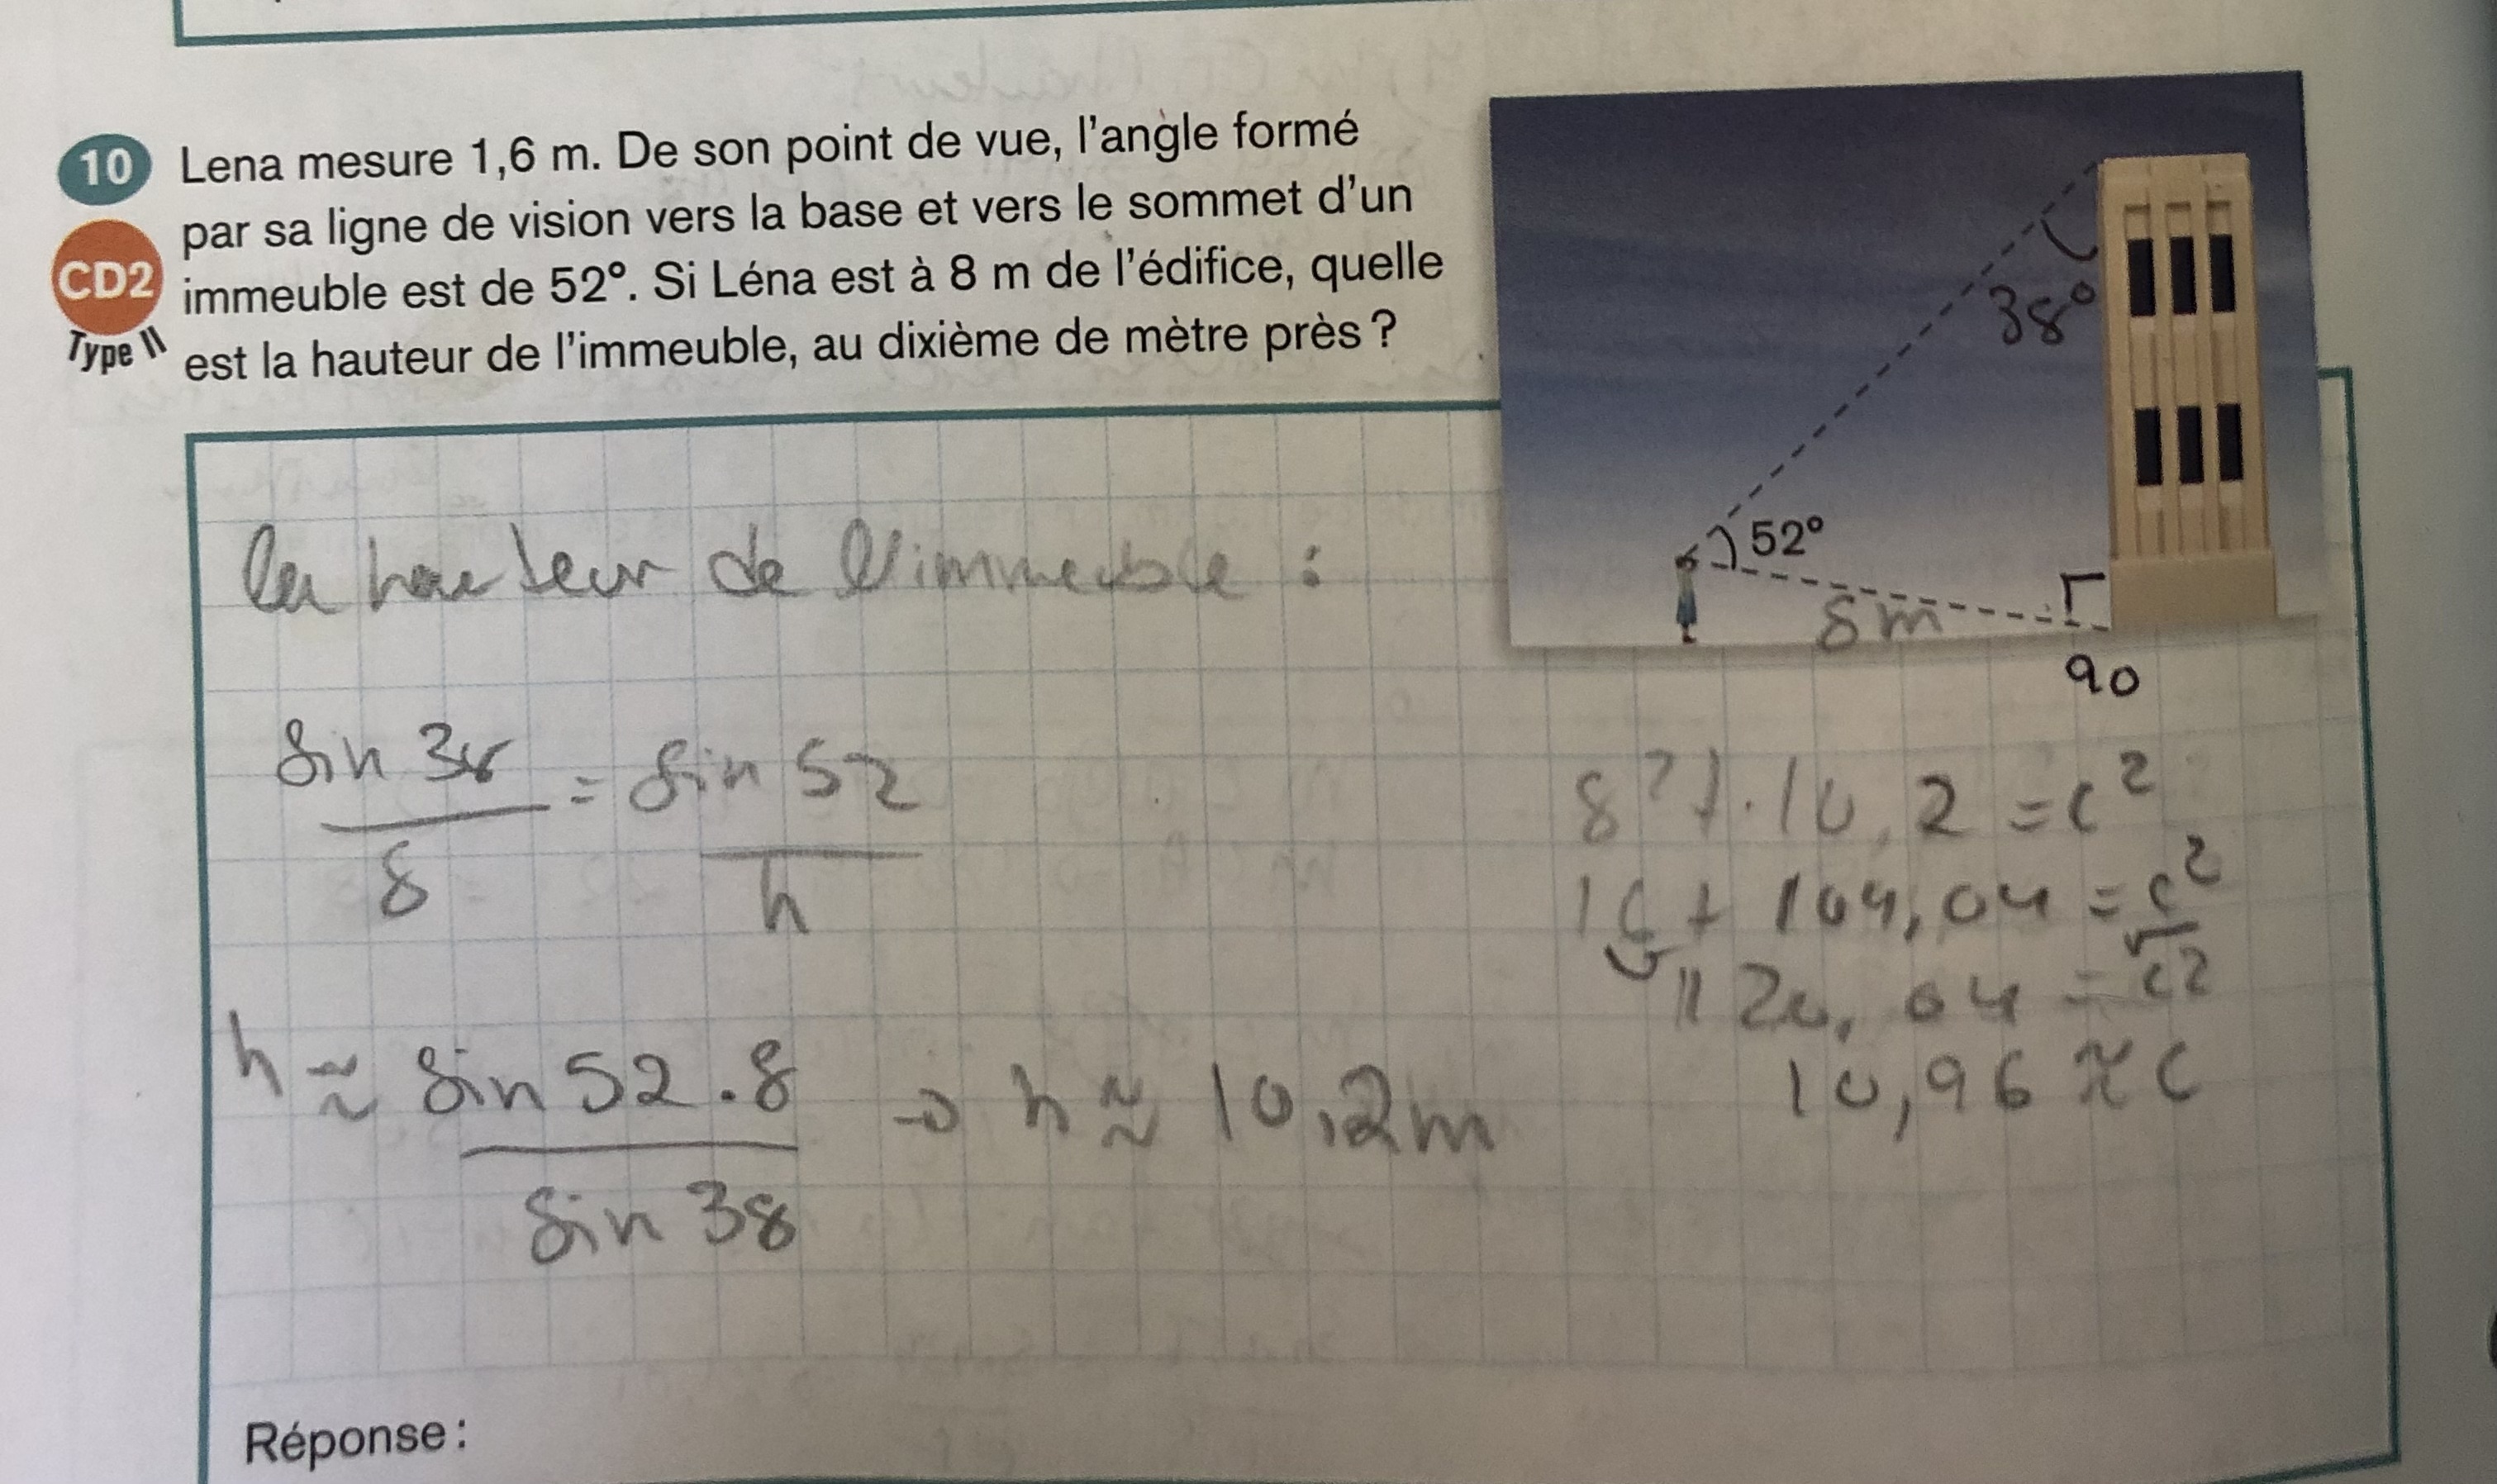 10 Lena mesure 1,6 m. De son point de vue, l'angle formé
par sa ligne de vision vers la base et vers le sommet d'un
CD2 immeuble est de 52°. Si Léna est à 8 m de l'édifice, quelle
Type II est la hauteur de l'immeuble, au dixième de mètre près ?
38°
52°
8 m
90
La hauteur de l'immeuble :
sin 38 / 8 = sin 52 / h
h ≈ sin 52 . 8 / sin 38 → h ≈ 10,2 m
8² + 10,2 = c²
16 + 104,04 = c²
120,04 = √c2
10,96 ≈ c
Réponse :